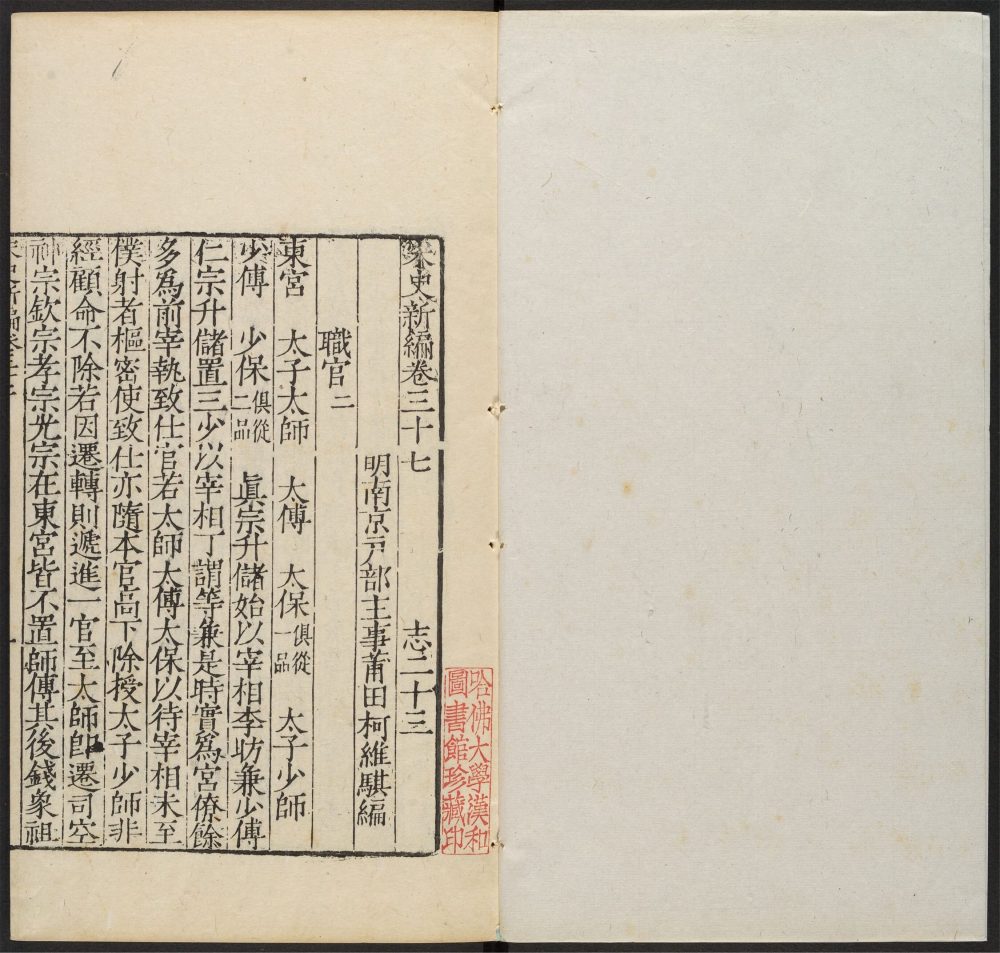 宋史新編卷三十七 志二十三
明南京戸部主事莆田柯維騏編
職官二
東宮 太子太師 太傅 太保俱從一品 太子少師
少傅 少保俱從二品 眞宗升儲始以宰相李昉兼少傅
仁宗升儲置三少以宰相丁謂等兼是時實爲宮僚餘
多為前宰執致仕官若太師太傅太保以待宰相未至
僕射者樞密使致仕亦隨本官高下除授太子少師非
經顧命不除若因遷轉則遞進一官至太師即遷司空
神宗欽宗孝宗光宗在東宮皆不置師傅其後錢象祖
哈佛大學漢和
圖書館珍藏印